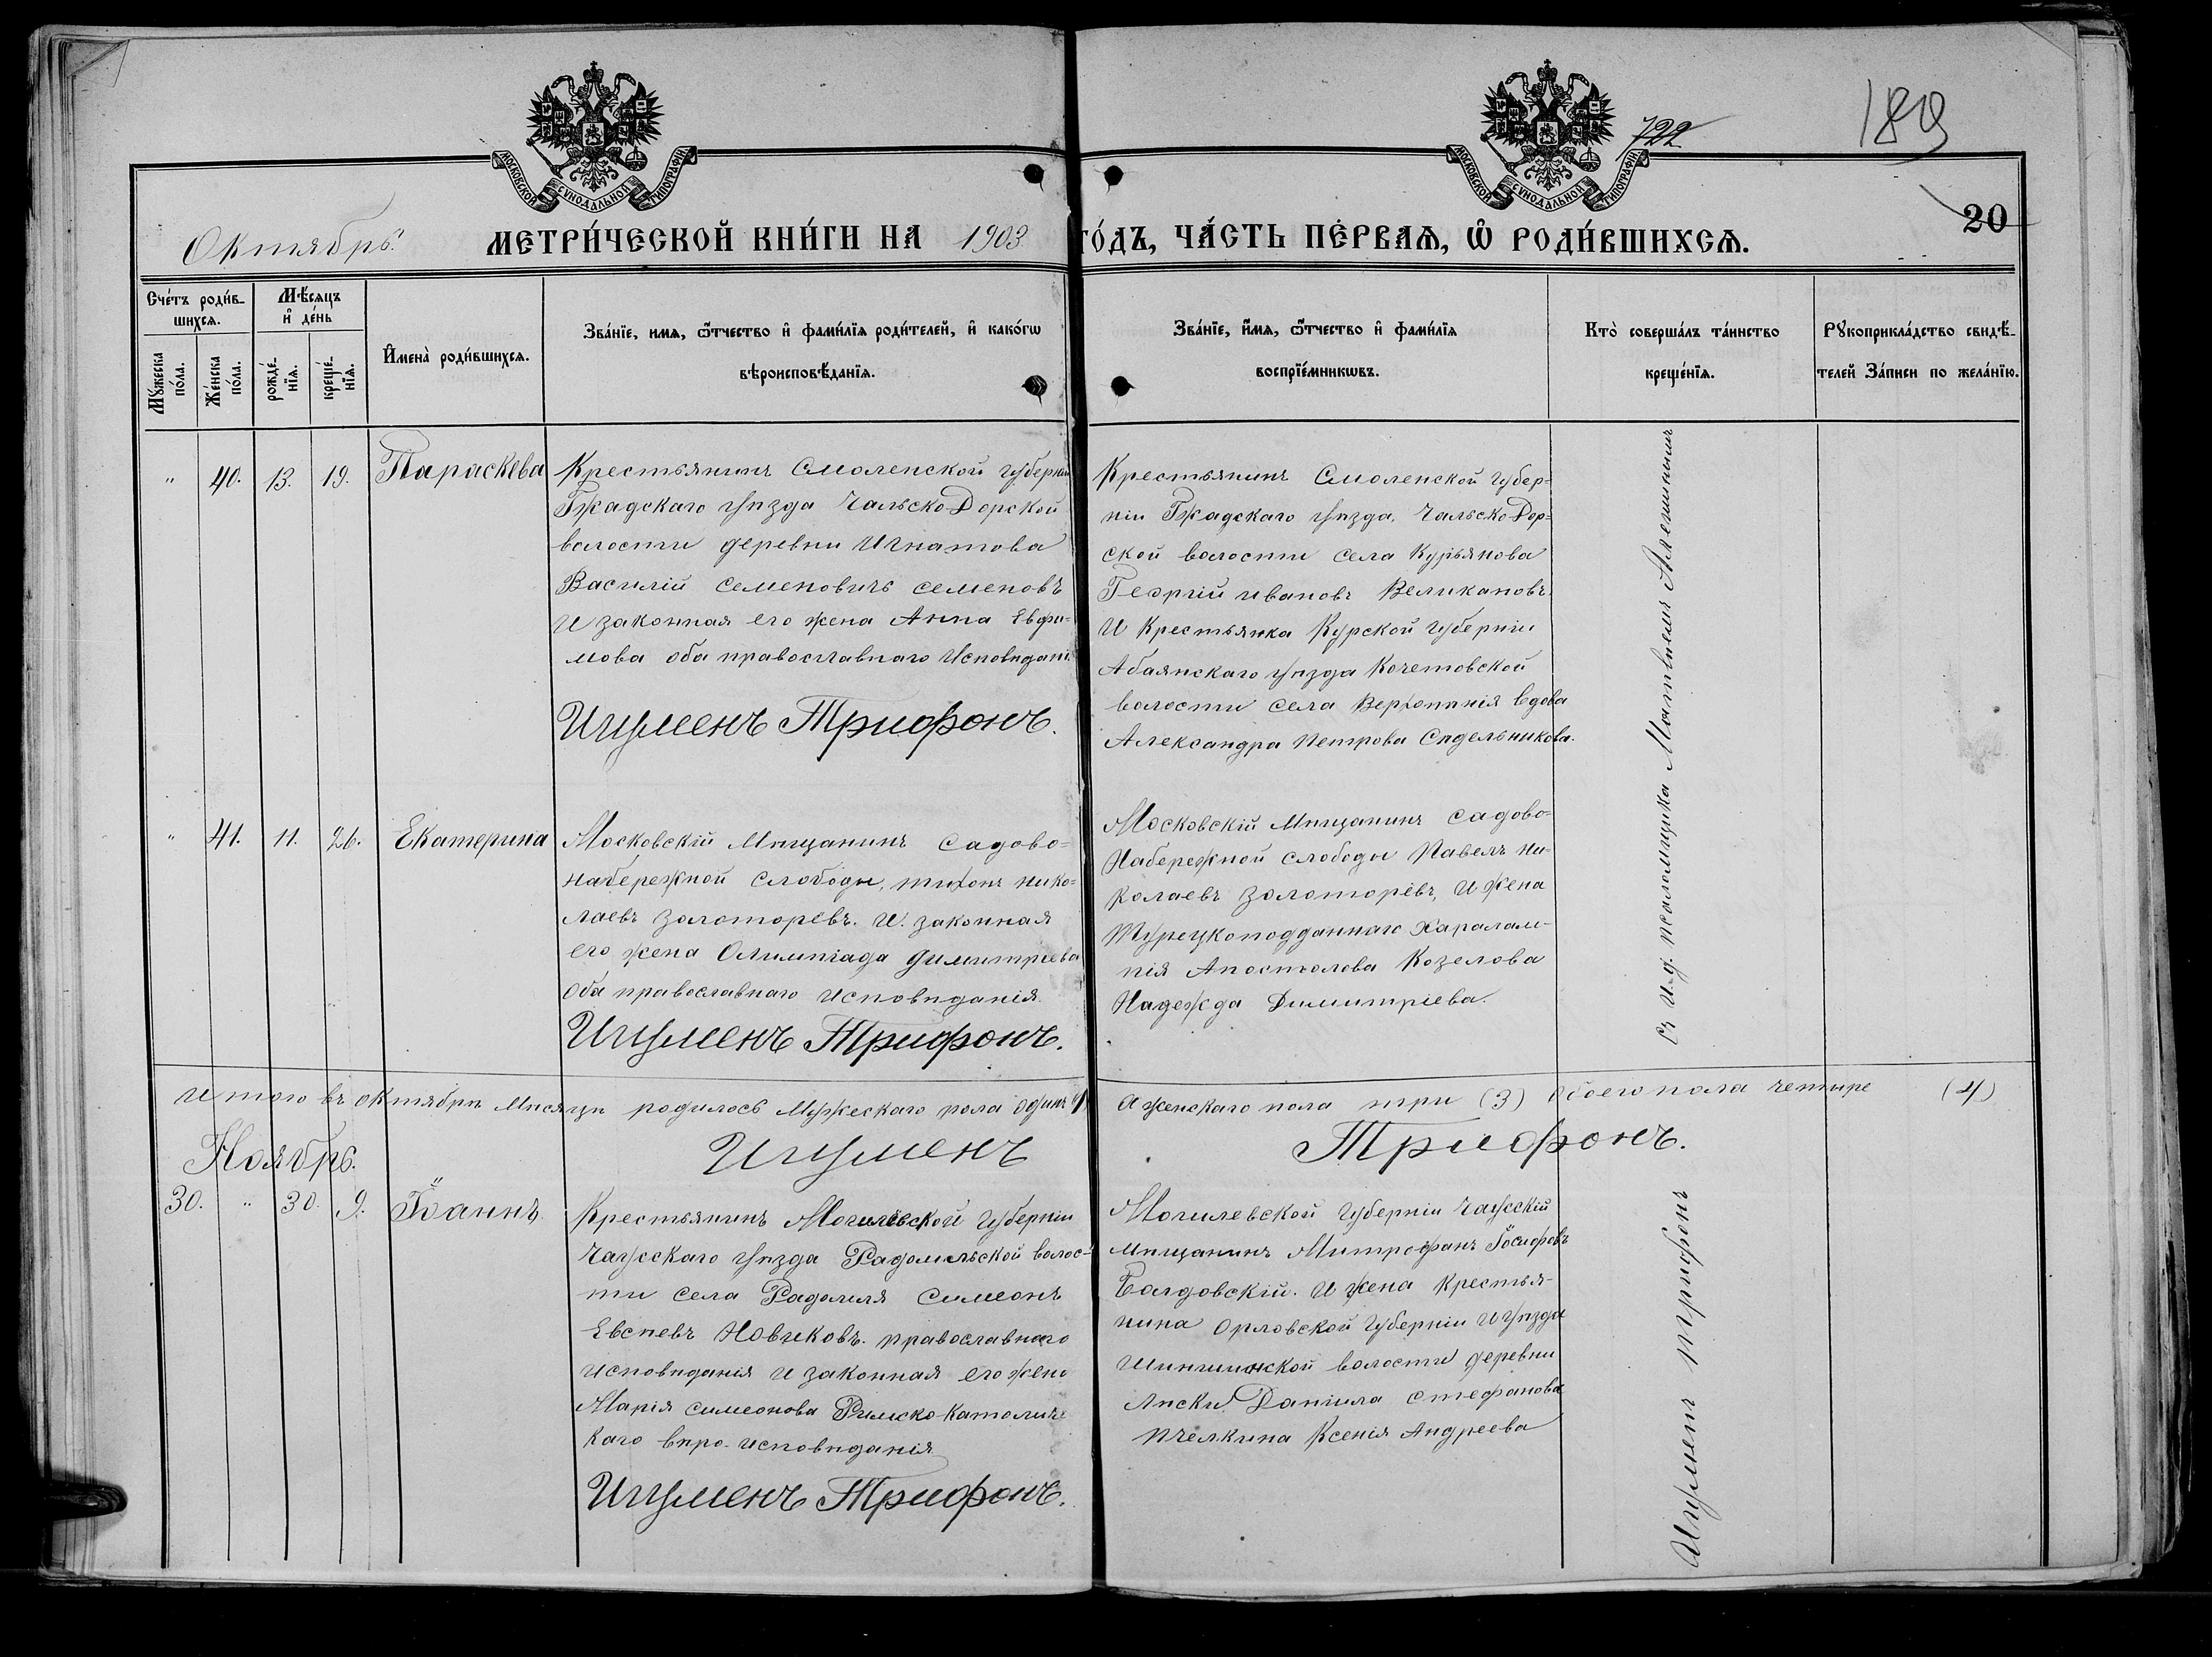 МОСКОВСКОЙ СѴНОДАЛЬНОЙ ТИПОГРАФІИ
МОСКОВСКОЙ СѴНОДАЛЬНОЙ ТИПОГРАФІИ
722
189
20
Октябрь.
МЕТРИ́ЧЕСКОЙ КНИ́ГИ НА 1903 ГО́ДЪ, ЧА́СТЬ ПЕ́РВАѦ, Ѡ РОДИ́ВШИХСѦ.
Сче́тъ роди́в-
шихсѧ.
Мѣ́сѧцъ
и҆ де́нь
Мꙋ́жеска
по́ла.
Же́нска
по́ла.
рожде́-
нїѧ.
креще́-
нїѧ.
И҆мена̀ роди́вшихсѧ.
Зва́нїе, имѧ, ѻ҆́тчество и҆ фами́лїѧ роди́телей, и҆ како́гѡ
вѣроисповѣ́данїѧ.
Зва́нїе, и҆́мѧ, ѻ҆́тчество и҆ фами́лїѧ
воспрїе́мникѡвъ.
Кто̀ соверша́лъ та́инство
креще́нїѧ.
Рꙋкоприкла́дство свидѣ́-
телей За́писи по жела́нїю.
" 40. 13. 19. Параскева
Крестьянинъ Смоленской губерніи
Гжадскаго уѣзда Чальско-Дорской
волости деревни Игнатова
Василій Семеновичъ Семеновъ
И законная его жена Анна Евфи-
мова оба православнаго Исповѣдані.
Игуменъ Трифонъ.
Крестьянинъ Смоленской Губер=
ніи Гжадскаго уѣзда, Чальско-Дор=
ской волости села Курьянова
Георгій ивановъ Великановъ.
И Крестьянка Курской губерніи
Абаянскаго уѣзда Кочетовской
волости села Верхопѣнія вдова
Александра Петрова Сѣдельникова.
съ и.д. псаломщика Матвѣемъ Алешинымъ
" 41. 11. 26. Екатерина
Московскій Мѣщанинъ Садово=
набережной Слободы, тихонъ нико=
лаевъ Золоторевъ. И. законная
его жена Олимпіада Димитріева
Оба православнаго исповѣданія.
Игуменъ Трифонъ.
Московскій Мѣщанинъ Садово=
Набережной слободы Павелъ ни-
колаевъ Золоторевъ, И жена
Турецкоподданнаго Харалам-
пія Апостолова Козелова
Надежда Димитріева.
Итого въ октябрѣ Мѣсяцѣ родилось Мужескаго пола одинъ (1) А женскаго пола три (3) Обоего пола четыре (4)
Игуменъ Трифонъ.
Ноябрь.
30. " 30. 9. Іоаннъ
Крестьянинъ Могилевской Губерніи
Чаусскаго уѣзда Радомльской волос-
ти села Радомля Симеонъ
Евсѣевъ Новиковъ. православнаго
исповѣданія и законная его жена
Марія Симеонова Римско-Католиче
каго вѣро-исповѣданія
Игуменъ Трифонъ.
Могилевской Губерніи Чаусскій
мѣщанинъ Митрофанъ Іосифовъ
Болдовскій. И жена Крестья-
нина Орловской Губерніи и уѣзда
волости деревни
Лѣски Даніила Стефанова
Пчелкина Ксенія Андреева
Игуменъ Трифонъ